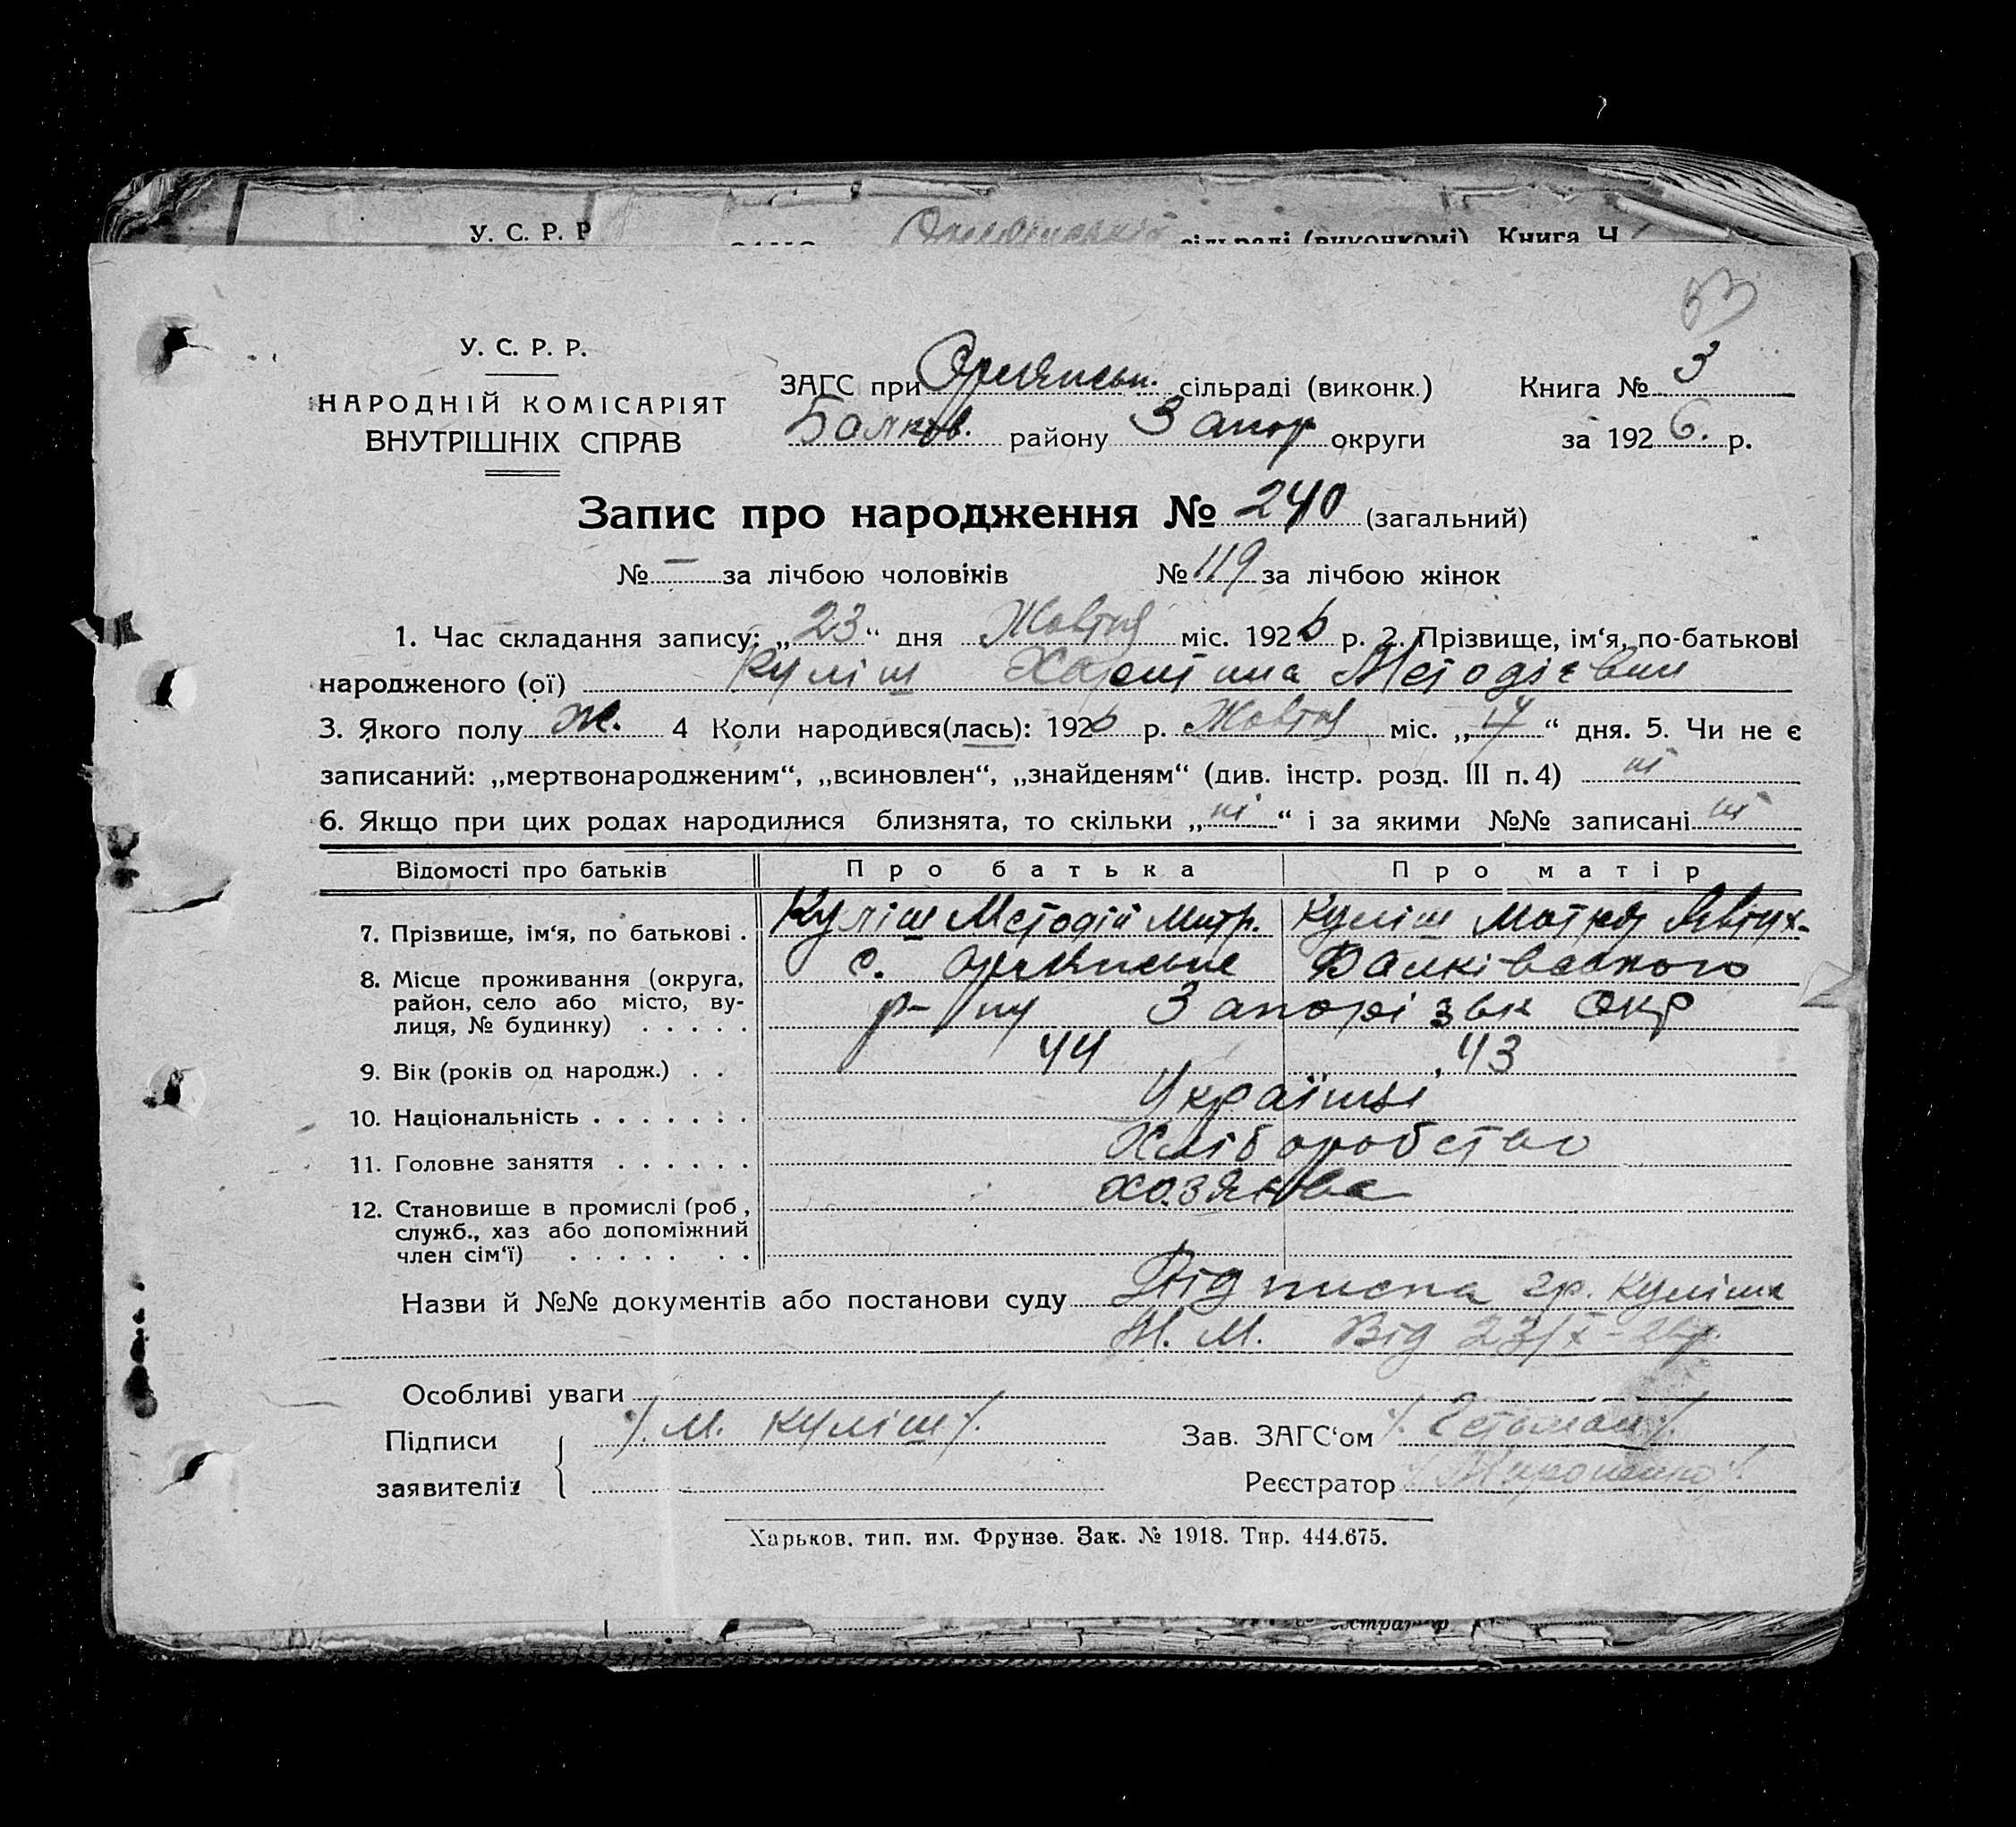 У. С. Р. Р
сільраді (виконкомі) Книга Ч
53
У. С. Р. Р.
НАРОДНІЙ КОМІСАРІЯТ
ВНУТРІШНІХ СПРАВ
ЗАГС при Орлянськ. сільраді (виконк.)
Балков. району Запор округи
Книга № 3
за 1926. р.
Запис про народження № 240 (загальний)
№ — за лічбою чоловіків № 119 за лічбою жінок
1. Час складання запису: „23“ дня Жовтня міс. 1926 р. 2. Прізвище, ім‘я, по-батькові
народженого (ої) Куліш Харитина Методієвни
3. Якого полу ж. 4 Коли народився(лась): 1926 р. Жовтня міс. „17“ дня. 5. Чи не є
записаний: „мертвонародженим“, „всиновлен“, „знайденям“ (див. інстр. розд. III п. 4) ні
6. Якщо при цих родах народилися близнята, то скільки „ні“ і за якими №№ записані ні
Відомості про батьків Про батька Про матір
7. Прізвище, ім‘я, по батькові . Куліш Методій Митр. Куліш Мотря Явтух.
8. Місце проживання (округа, с. Орлянське Балківського
район, село або місто, ву-
лиця, № будинку) . . . . . р-ну Запорізьк окр
9. Вік (років од народж.) . . 44 43
10. Національність . . . . . . . Українці
11. Головне заняття . . . . . . Хліборобство
12. Становище в промислі (роб , хозяєва
служб., хаз або допоміжний
член сім‘ї) . . . . . . .
Назви й №№ документів або постанови суду Підписка гр. Куліша
М. М. Від 23/X-26р.
Особливі уваги
Підписи /. М. Куліш /.
заявителів
Зав. ЗАГС‘ом /. Гетьман /.
Реєстратор
Харьков. тип. им. Фрунзе. Зак. № 1918. Тир. 444.675.